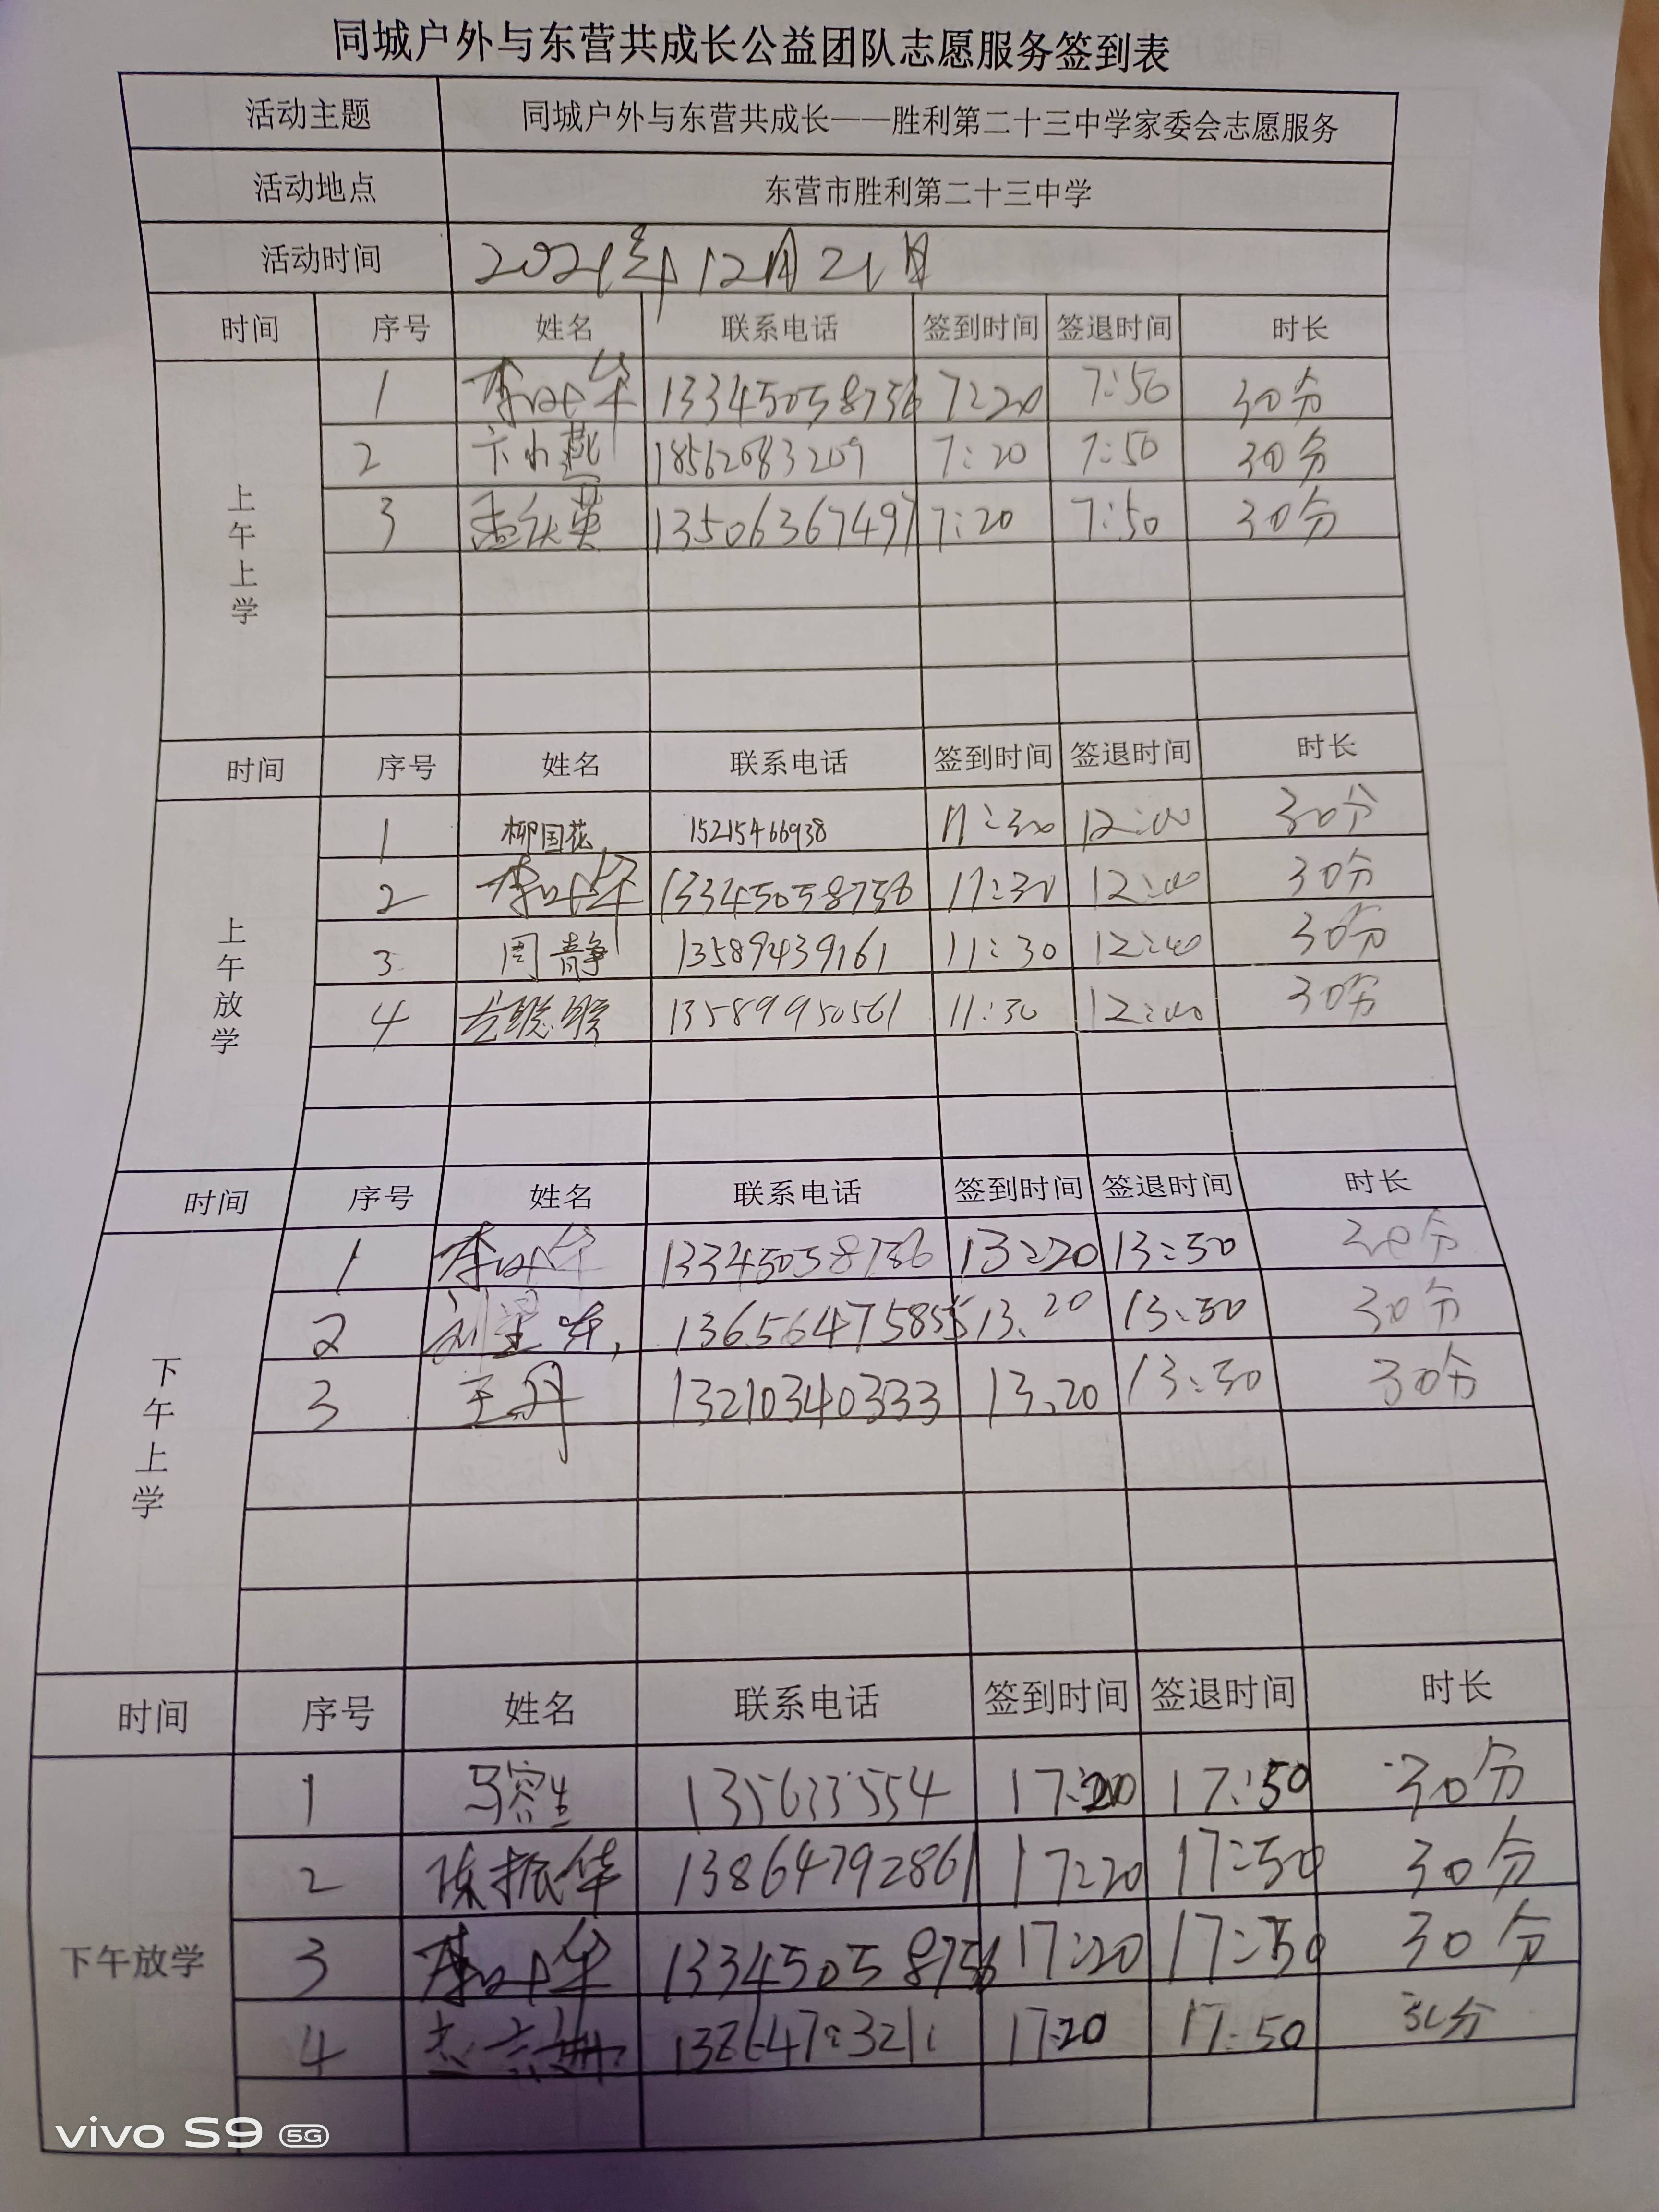 同城户外与东营共成长公益团队志愿服务签到表
活动主题 同城户外与东营共成长——胜利第二十三中学家委会志愿服务
活动地点 东营市胜利第二十三中学
活动时间 2021年12月21日
时间 序号 姓名 联系电话 签到时间 签退时间 时长
上午上学
1 李叶华 13345058756 7:20 7:50 30分
2 18562083209 7:20 7:50 30分
3 孟庆英 13506367497 7:20 7:50 30分
时间 序号 姓名 联系电话 签到时间 签退时间 时长
上午放学
1 柳国花 15215466938 11:30 12:00 30分
2 李叶华 13345058756 11:30 12:00 30分
3 周静 13589439161 11:30 12:00 30分
4 13589950561 11:30 12:00 30分
时间 序号 姓名 联系电话 签到时间 签退时间 时长
下午上学
1 李叶华 13345058756 13:20 13:50 30分
2 13656475855 13.20 13:50 30分
3 王丹 13210340333 13.20 13:50 30分
时间 序号 姓名 联系电话 签到时间 签退时间 时长
下午放学
1 17:20 17:50 30分
2 陈振华 13864792861 17:20 17:50 30分
3 李叶华 13345058756 17:20 17:50 30分
4 17:20 17:50 30分
vivo S9 5G